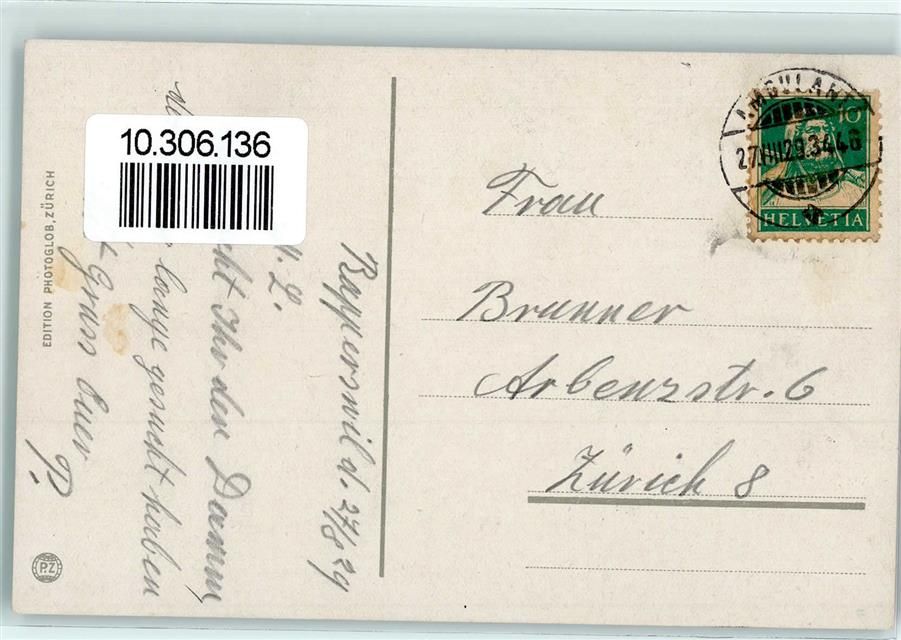 10.306.136
EDITION PHOTOGLOB, ZÜRICH
P.Z
Rapperswil d. 27/8 29
L.
Ihr den Damm,
lange gesucht haben
Gruss Euer
P.
AMBULANT
27.VIII.29.3446
10
HELVETIA
Frau
Brunner
Arbenzstr. 6
Zürich 8